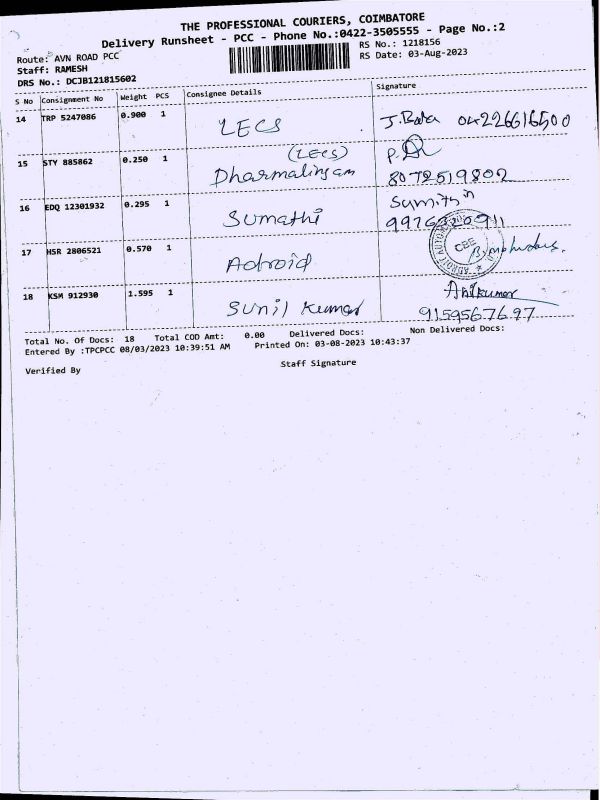 THE PROFESSIONAL COURIERS, COIMBATORE
Delivery Runsheet - PCC - Phone No.:0422-3505555 - Page No.:2
Route: AVN ROAD PCC
RS No.: 1218156
Staff: RAMESH
RS Date: 03-Aug-2023
DRS No.: DCJB121815602
S No Consignment No Weight PCS Consignee Details Signature
14 TRP 5247086 0.900 1 LECS J. Bala 04226616500
15 STY 885862 0.250 1 (LECS) Dharmalingam
8072519802
16 EDQ 12301932 0.295 1 Sumathi Sumithin
9976320911
17 HSR 2806521 0.570 1 Adroid
CBE
18 KSM 912930 1.595 1 Sunil Kumar Anilkumar
9159567697
Total No. Of Docs: 18 Total COD Amt: 0.00 Delivered Docs: Non Delivered Docs:
Entered By :TPCPCC 08/03/2023 10:39:51 AM Printed On: 03-08-2023 10:43:37
Verified By Staff Signature